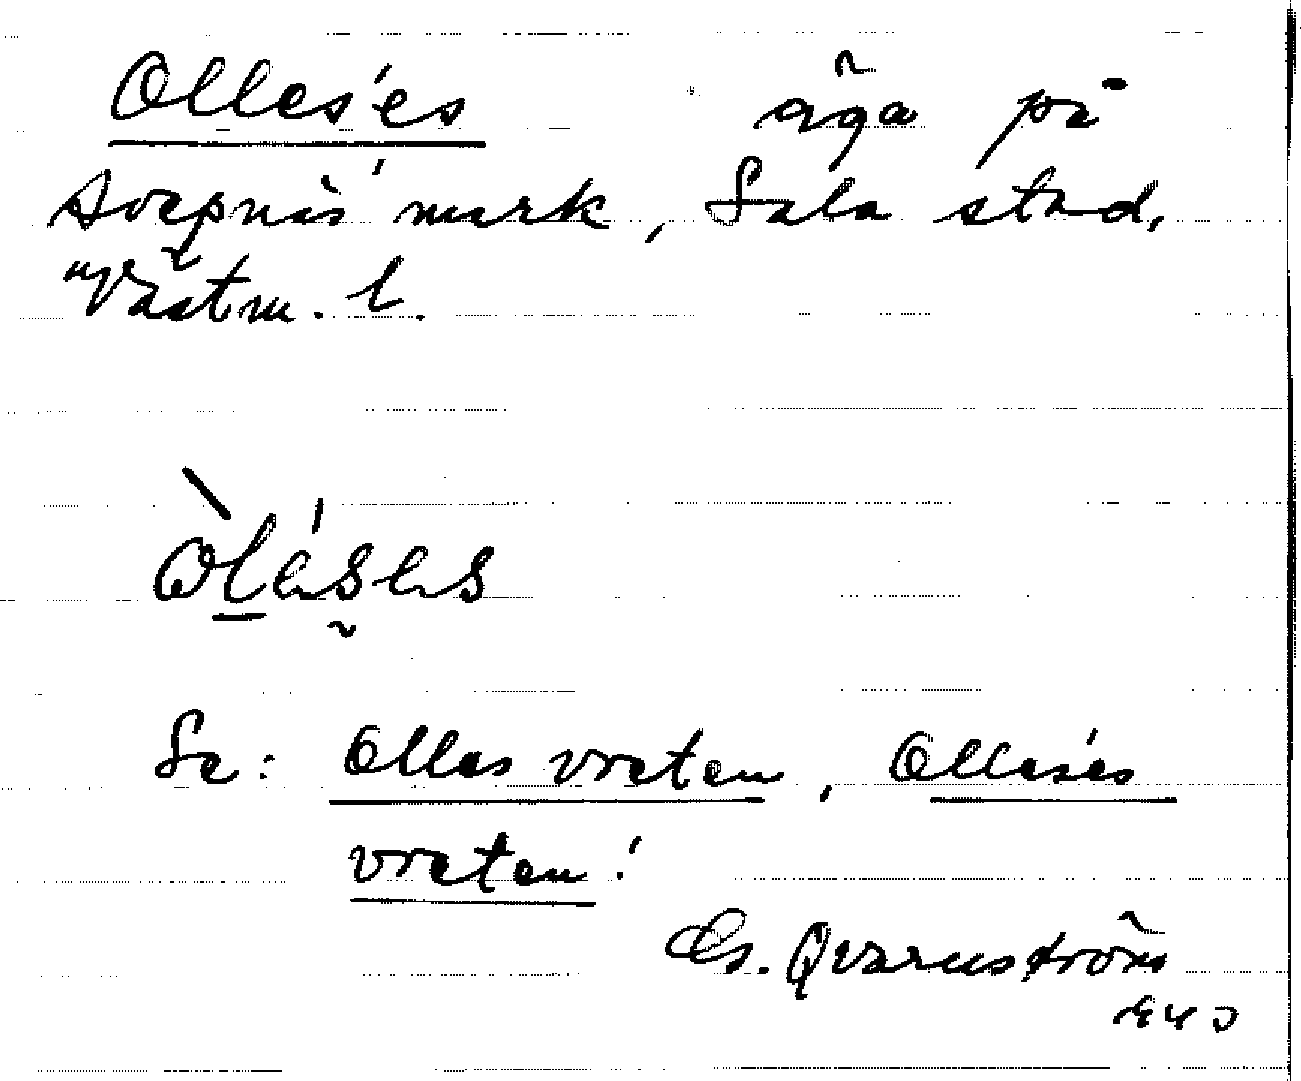 Olles'es äga på
Svepnis' mark, Sala stad,
Västm. l.
òléses
Se: Olles vreten, Olleses
vreten!
Gs. Qvarnström